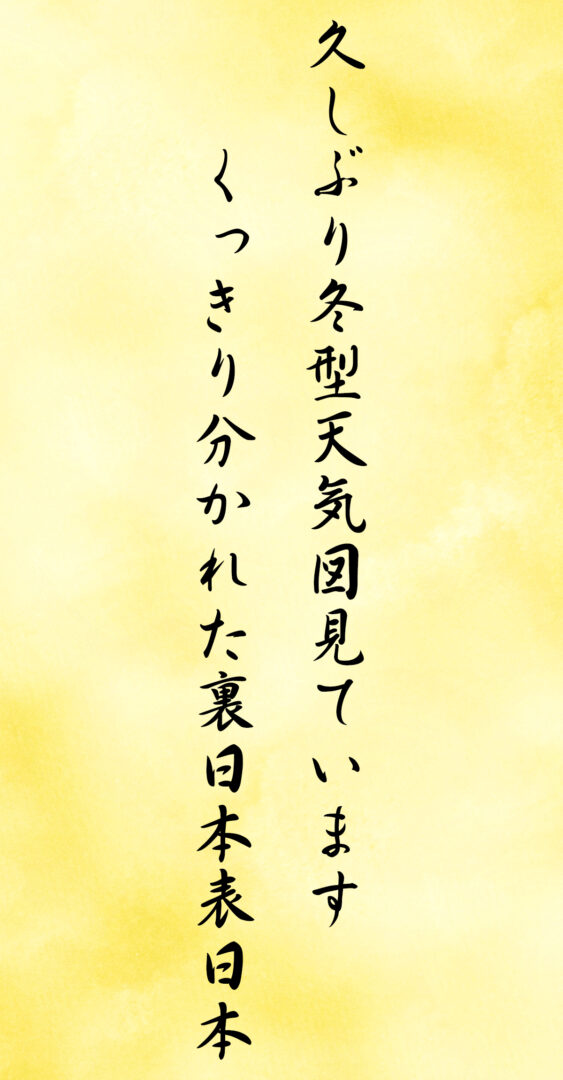 久しぶり冬型天気図見ています
くっきり分かれた裏日本表日本